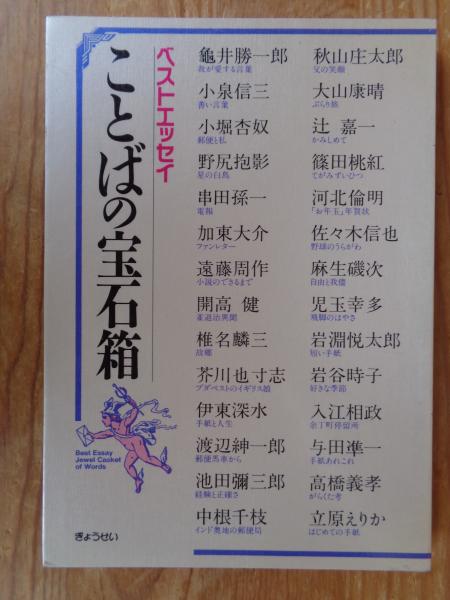 ベストエッセイ
ことばの宝石箱
Best Essay
Jewel Casket
of Words
ぎょうせい
秋山庄太郎
父の笑顔
大山康晴
ぶらり旅
辻 嘉一
かみしめて
篠田桃紅
てがみずいひつ
河北倫明
「お年玉」年賀状
佐々木信也
野球のうらがわ
麻生磯次
自由と我儘
児玉幸多
飛脚のはやさ
岩淵悦太郎
短い手紙
岩谷時子
好きな季節
入江相政
余丁町停留所
与田準一
手紙あれこれ
高橋義孝
がらくた考
立原えりか
はじめての手紙
龜井勝一郎
我が愛する言葉
小泉信三
善い言葉
小堀杏奴
郵便と私
野尻抱影
星の白鳥
串田孫一
電報
加東大介
ファンレター
遠藤周作
小説のできるまで
開高 健
椎名麟三
故郷
芥川也寸志
ブダペストのイギリス娘
伊東深水
手紙と人生
渡辺紳一郎
郵便馬車から
池田彌三郎
経験と正確さ
中根千枝
インド奥地の郵便局